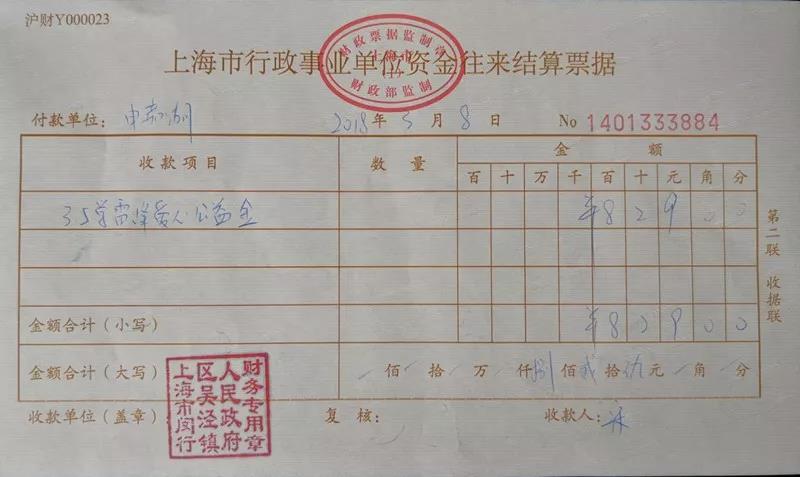 沪财Y000023
财政票据监制章
上海市
财政部监制
上海市行政事业单位资金往来结算票据
付款单位: 2018年5月8日 No 1401333884
收款项目 数量 金额
百十万千百十元角分
¥82900
金额合计(小写) ¥82900
金额合计(大写) 佰拾万仟捌佰贰拾玖元角分
收款单位(盖章) 复核: 收款人:
上海市闵行
区吴泾镇
人民政府
财务专用章
第二联 收据联